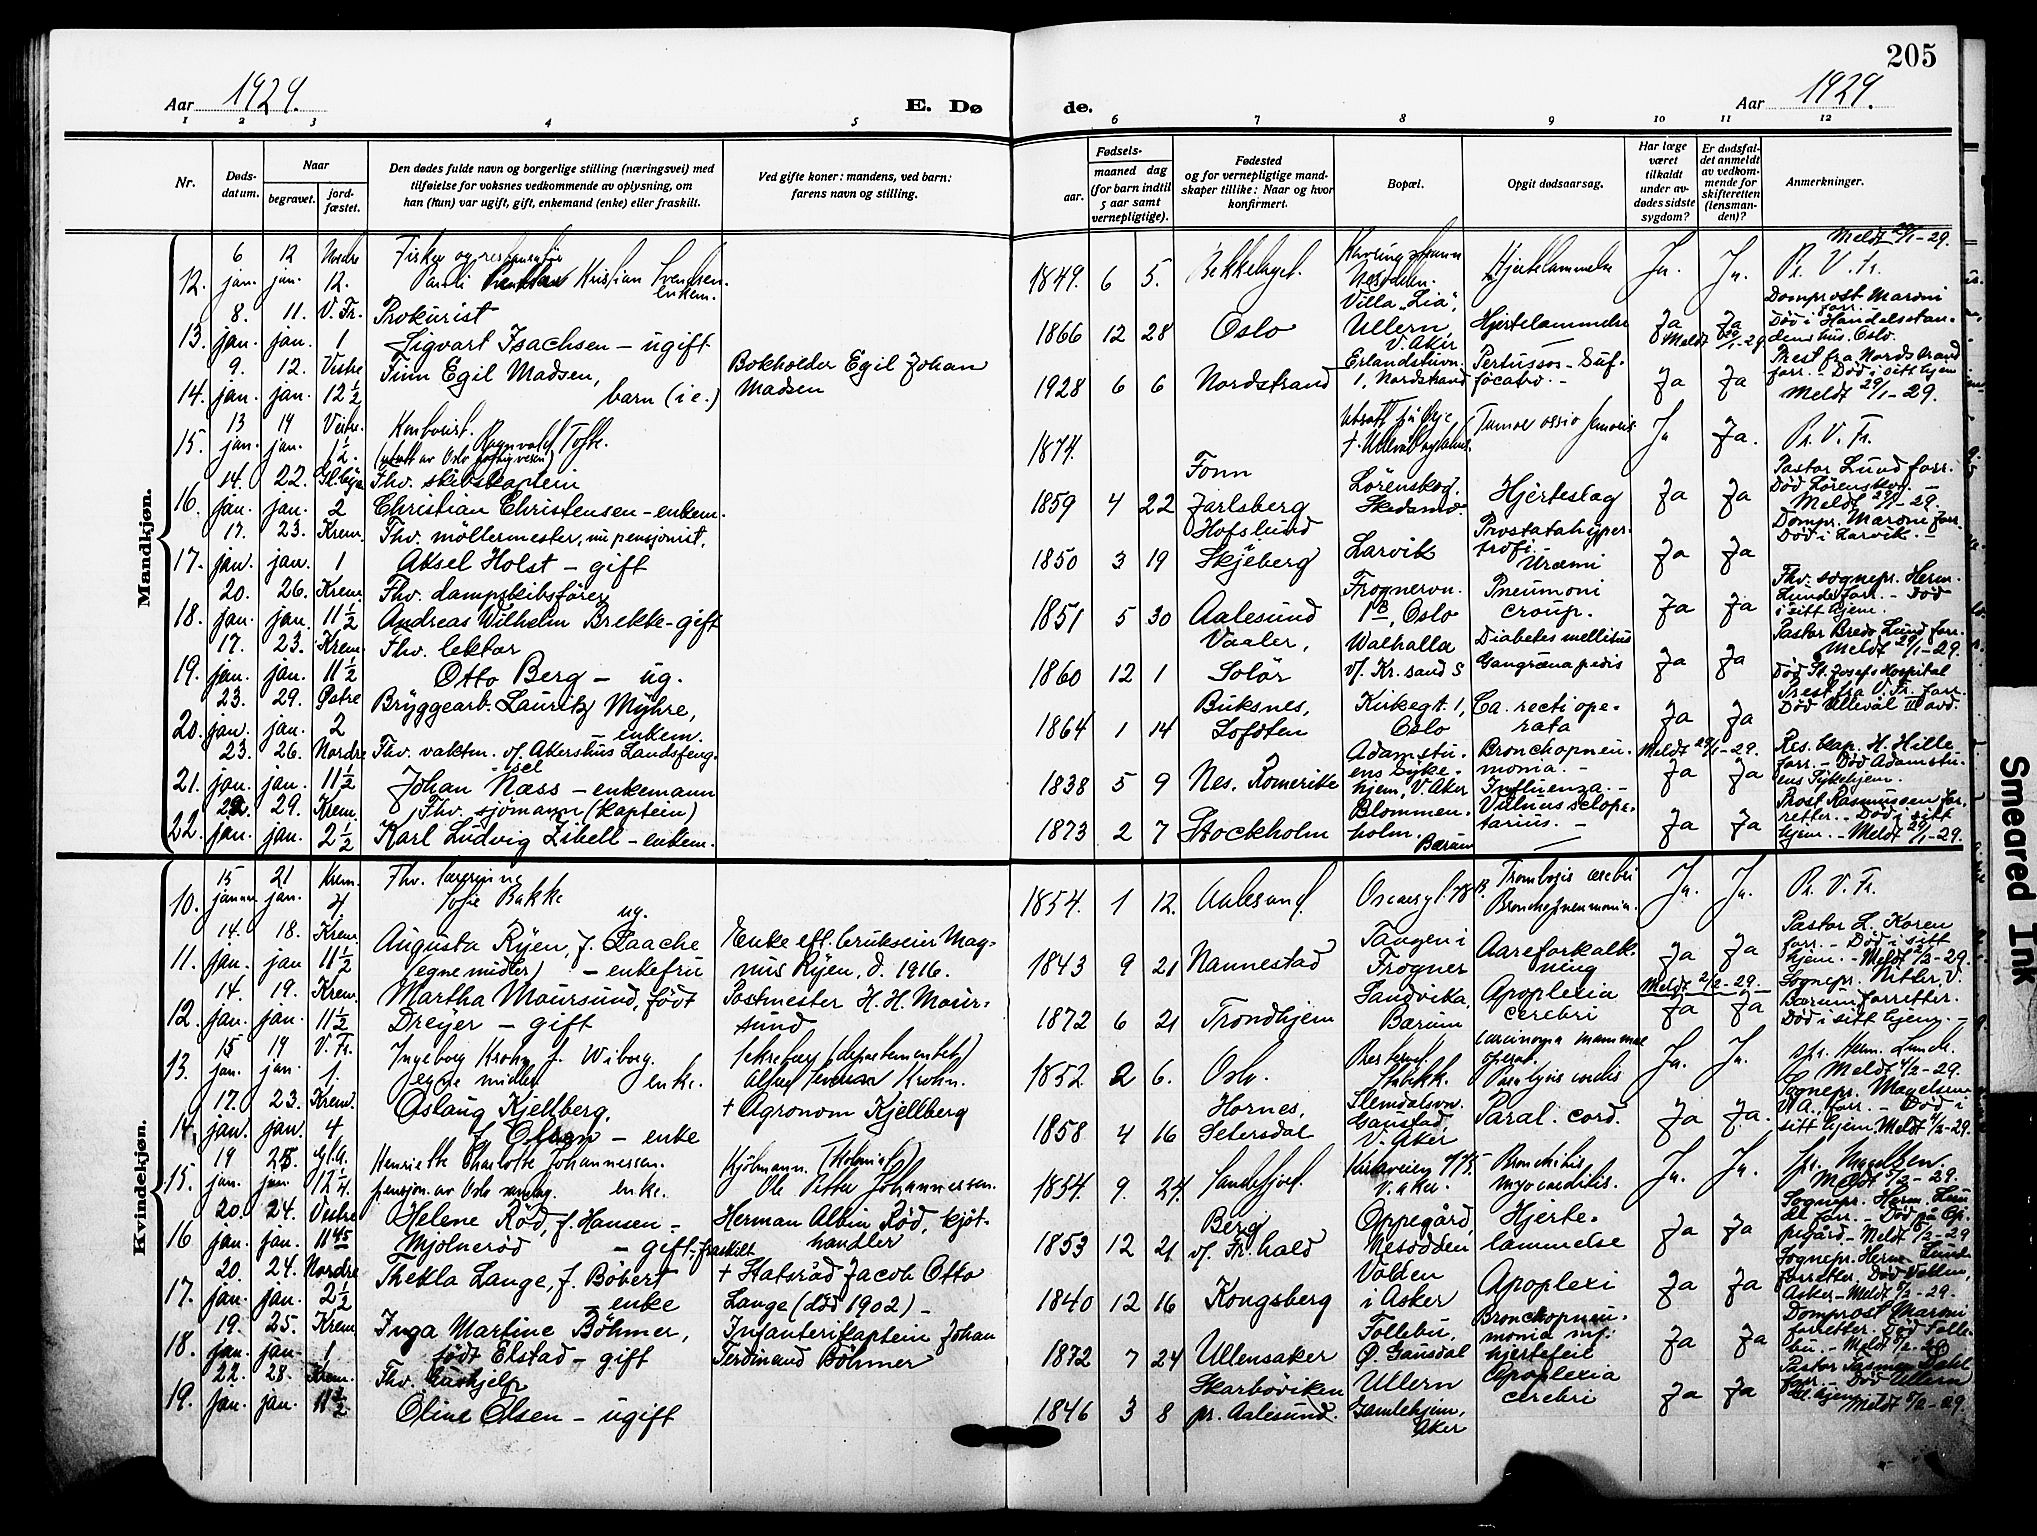 205
Aar 1929.
E. Dø
de.
Aar 1929.
1 2 3 4 5 6 7 8 9 10 11 12
Nr.
Døds-
datum.
Naar
begravet.
jord-
fæstet.
Den dødes fulde navn og borgerlige stilling (næringsvei) med
tilføielse for voksnes vedkommende av oplysning, om
han (hun) var ugift, gift, enkemand (enke) eller fraskilt.
Ved gifte koner: mandens, ved barn:
farens navn og stilling.
Fødsels-
aar.
maaned dag
(for barn indtil
5 aar samt
vernepligtige).
Fødested
og for vernepligtige mand-
skaper tillike: Naar og hvor
konfirmert.
Bopæl.
Opgit dødsaarsag.
Har læge
været
tilkaldt
under av-
dødes sidste
sygdom?
Er dødsfal-
det anmeldt
av vedkom-
mende for
skifteretten
(lensman-
den)?
Anmerkninger.
Mandkjøn.
6 12 Nordre Fisker og
Meldt 29/1-29.
12. jan. jan. 12. Kristian Svendsen enkem. 1849. 6 5. Bekkelaget. Nesodden. Hjertelammelse Ja. Ja. Pr. V. Fr.
8. 11. V. Fr. Prokurist Villa "Lia", Domprost Maroni forr.
13. jan. jan. 1 Sigvart Isachsen - ugift 1866 12 28 Oslo Ullern, V. Aker Hjertelammelse Ja Ja Død i Handelsstan-
dens hus. Oslo.
Meldt 29/1-29
9. 12. Vestre Finn Egil Madsen, Bokholder Egil Johan Erlandstuvn. Pertussos - Suf- Prest fra Nordstrand
14. jan. jan. 12½ barn (i e.) Madsen 1928 6 6 Nordstrand 1, Nordstrand focatio. - Ja Ja forr. - Død i sitt hjem
Meldt 29/1-29.
13 19 Vestre. Kontorist.
15. jan. jan. 1½. Ragnvald Tofte. 1874. Ja Ja. Pr. V. Fr.
14. 22. Fhv. skibskaptein Fonn Lørenskog, Pastor Lund forr.
16. jan. jan. 2 Christian Christensen - enkem. 1859 4 22 Jarlsberg Skedsmo. Hjerteslag Ja Ja Død Lørenskog. -
Meldt 29/1-29.
17. 23. Krem. Fhv. möllermester, nu pensjonist, Hofslund Prostatahyper- Dompr. Maroni forr.
17. jan. jan. 1 Aksel Holst - gift 1850 3 19 Skjeberg Larvik trofi. Uræmi Ja Ja Død i Larvik. -
20. 26. Krem. Fhv. dampskibsfører Frognervn. Pneumoni Fhv. sognepr. Herm.
18. jan. jan. 11½ Andreas Wilhelm Brekke - gift 1851 5 30 Aalesund 1B, Oslo croup. Ja Ja Lunde forr. - Død
i sitt hjem.
17. 23. Krem. Fhv. lektor Vaaler, Walhalla Diabetes mellitus Pastor Bredo Lund forr.
Meldt 29/1-29.
19. jan. jan. 11½ Otto Berg - ug. 1860 12 1 Solör v/ Kr.sand S Gangræna pedis Ja Ja Død St. Josefs Hospital
23. 29. Østre Bryggearb. Lauritz Myhre, Buksnes, Kirkegt. 1, Ca. recti ope- Prest fra V. Fr. forr.
20. jan. jan. 2 - enkem. 1864 1 14 Lofoten Oslo rata Ja Ja Død Ullevål III avd.
23. 26. Nordre Fhv. vaktm. v/ Akershus Landsfeng- Adamstu- Bronchopneu- Meldt 29/1-29. Res. kap. H. Hille
21. jan. jan. 11½ sel Johan Næss - enkemann 1838 5 9 Nes. Romerike ens Syke- hjem, V. Aker monia. - Influenza. - Ja Ja forr. - Død Adamstu-
ens Sykehjem.
22. 29. Krem. Fhv. sjömann (kaptein) Blommen- Vulnus sclope- Prost Rasmussen for-
22. jan. jan. 2½ Karl Ludvig Zibell - enkem. 1873 2 7 Stockholm holm. Bærum tarius. - Ja Ja retter. - Død i sitt
hjem. - Meldt 29/1-29.
Kvindekjøn.
15 21 Krem. Fhv. lærerinne Trombosis cerebri
10. januar jan. 4 Sofie Bakke ug. 1854. 1 12. Aalesund. Bronchopneumonia. Ja. Ja. Pr. V. Fr.
14. 18. Krem. Augusta Ryen, f. Laache Enke eft. brukseier Mag- Tangen i Aareforkalk- Pastor L. Koren
11. jan. jan 11½ (egne midler) - enkefru nus Ryen, d. 1916. 1843 9 21 Nannestad Frogner ning Ja Ja forr. - Død i sitt
hjem. - Meldt 2/2-29.
14. 19. Krem. Martha Maursund, født Postmester H. H. Maur- Sandvika, Apoplexia Meldt 2/2-29. Sognepr. Nitter, V.
12. jan. jan. 11½ Dreyer - gift sund 1872 6 21 Trondhjem Bærum cerebri Ja Ja Bærum forretter.
Død i sitt hjem. -
15 19 V. Fr. Ingeborg Krohn f. Wiborg. Sekretær (departementet) carcinoma mammae
13. jan. jan. 1. egne midler enke. Alfred Severin Krohn. 1852 2 6. Oslo. Stabekk. operat. Paralysis cordis Ja. Ja. spr. Herm. Lunde.
Meldt 4/2-29.
17. 23. Krem. Aslaug Kjellberg, + Agronom Kjellberg Hornes, Slemdalsvn. Sognepr. Magelssen
14. jan. jan. 4 f. Olsen - enke 1858 4 16 Setersdal Gaustad, V. Aker Paral. cord. Ja Ja. V. A., forr. - Død i
sitt hjem. Meldt 4/2-29.
19 25. Henriette Charlotte Johannessen. Kjøbmann. Bronchitis spr. Magelssen
15. jan. jan. 12¼. pensjon. av Oslo enke. Ole Petter Johannessen. 1854. 9. 24. Sandefjord. Kirkeveien V. Aker. myocarditis. Ja. Ja. Meldt 5/2-29.
20. 24. Vestre Helene Rød, f. Hansen - Herman Albin Rød, kjøt- Berg Oppegård, Hjerte- Sognepr. Herm. Lun-
16 jan. jan. 11 45 Mjølnerød - gift - fraskilt handler 1853 12 21 v/ Fr.hald Nesodden lammelse Ja Ja de forr. - Død på Op-
pegård - Meldt 5/2-29
20. 24. Nordre Thekla Lange, f. Böbert + Statsråd Jacob Otto Volden Sognepr. Herm. Lunde
17. jan. jan. 2½ - enke Lange (død 1902) - 1840 12 16 Kongsberg i Asker Apoplexi Ja Ja forretter. Død Vollen,
Asker - Meldt 5/2-29.
19. 25. Krem. Inga Martine Böhmer, Infanterikaptein Johan Follebu, Bronchopneu- Domprost Maroni
18. jan. jan. 1 født Elstad - gift Ferdinand Böhmer 1872 7 24 Ullensaker Ø. Gausdal monia m/ hjertefeil Ja Ja forretter. Død Folle-
bu. - Meldt 5/2-29
22. 28. Krem. Fhv. hushjelp Skarbøviken Ullern Apoplexia Pastor Rasmus Dahl
19. jan. jan. 11½ Oline Olsen - ugift 1846 3 8 pr. Aalesund. Gamlehjem, Aker cerebri Ja Ja forr. - Død Ullern
Gl. hjem. Meldt 5/2-29.
Smeared Ink